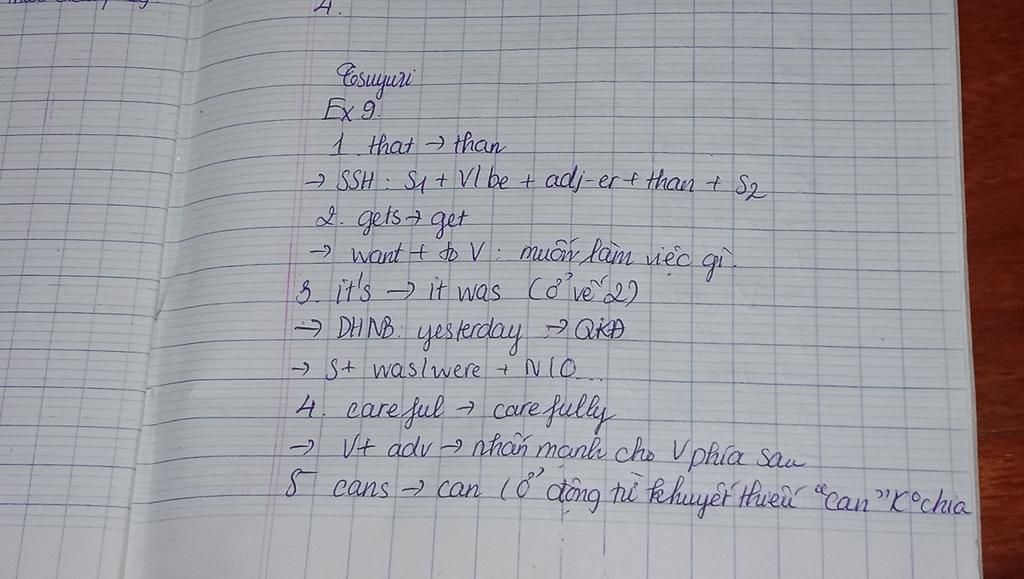 4.
Tsuyuri
Ex 9.
1 that → than
→ SSH: S1 + V/be + adj-er + than + S2
2. gets → get
→ want + to V: muốn làm việc gì.
3. it's → it was (ở vế 2)
→ DHNB: yesterday → QKĐ
→ S+ was/were + N/O...
4. careful → carefully
→ V+ adv → nhấn mạnh cho V phía sau
5 cans → can (ở động từ khuyết thiếu "can" K° chia